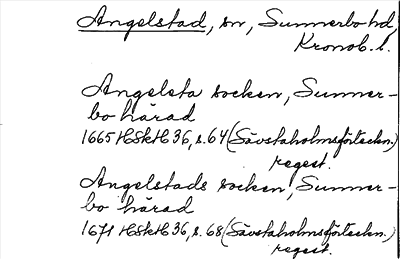 Angelstad, sn, Sunnerbo hd,
Kronob. l.
Angelsta socken, Sunner-
bo härad
1665 HSkH 36, s. 64 (Sävstaholmsförteckn.)
regest.
Angelstads socken, Sunner-
bo härad
1671 HSkH 36, s. 68 (Sävstaholmsförteckn.)
regest.